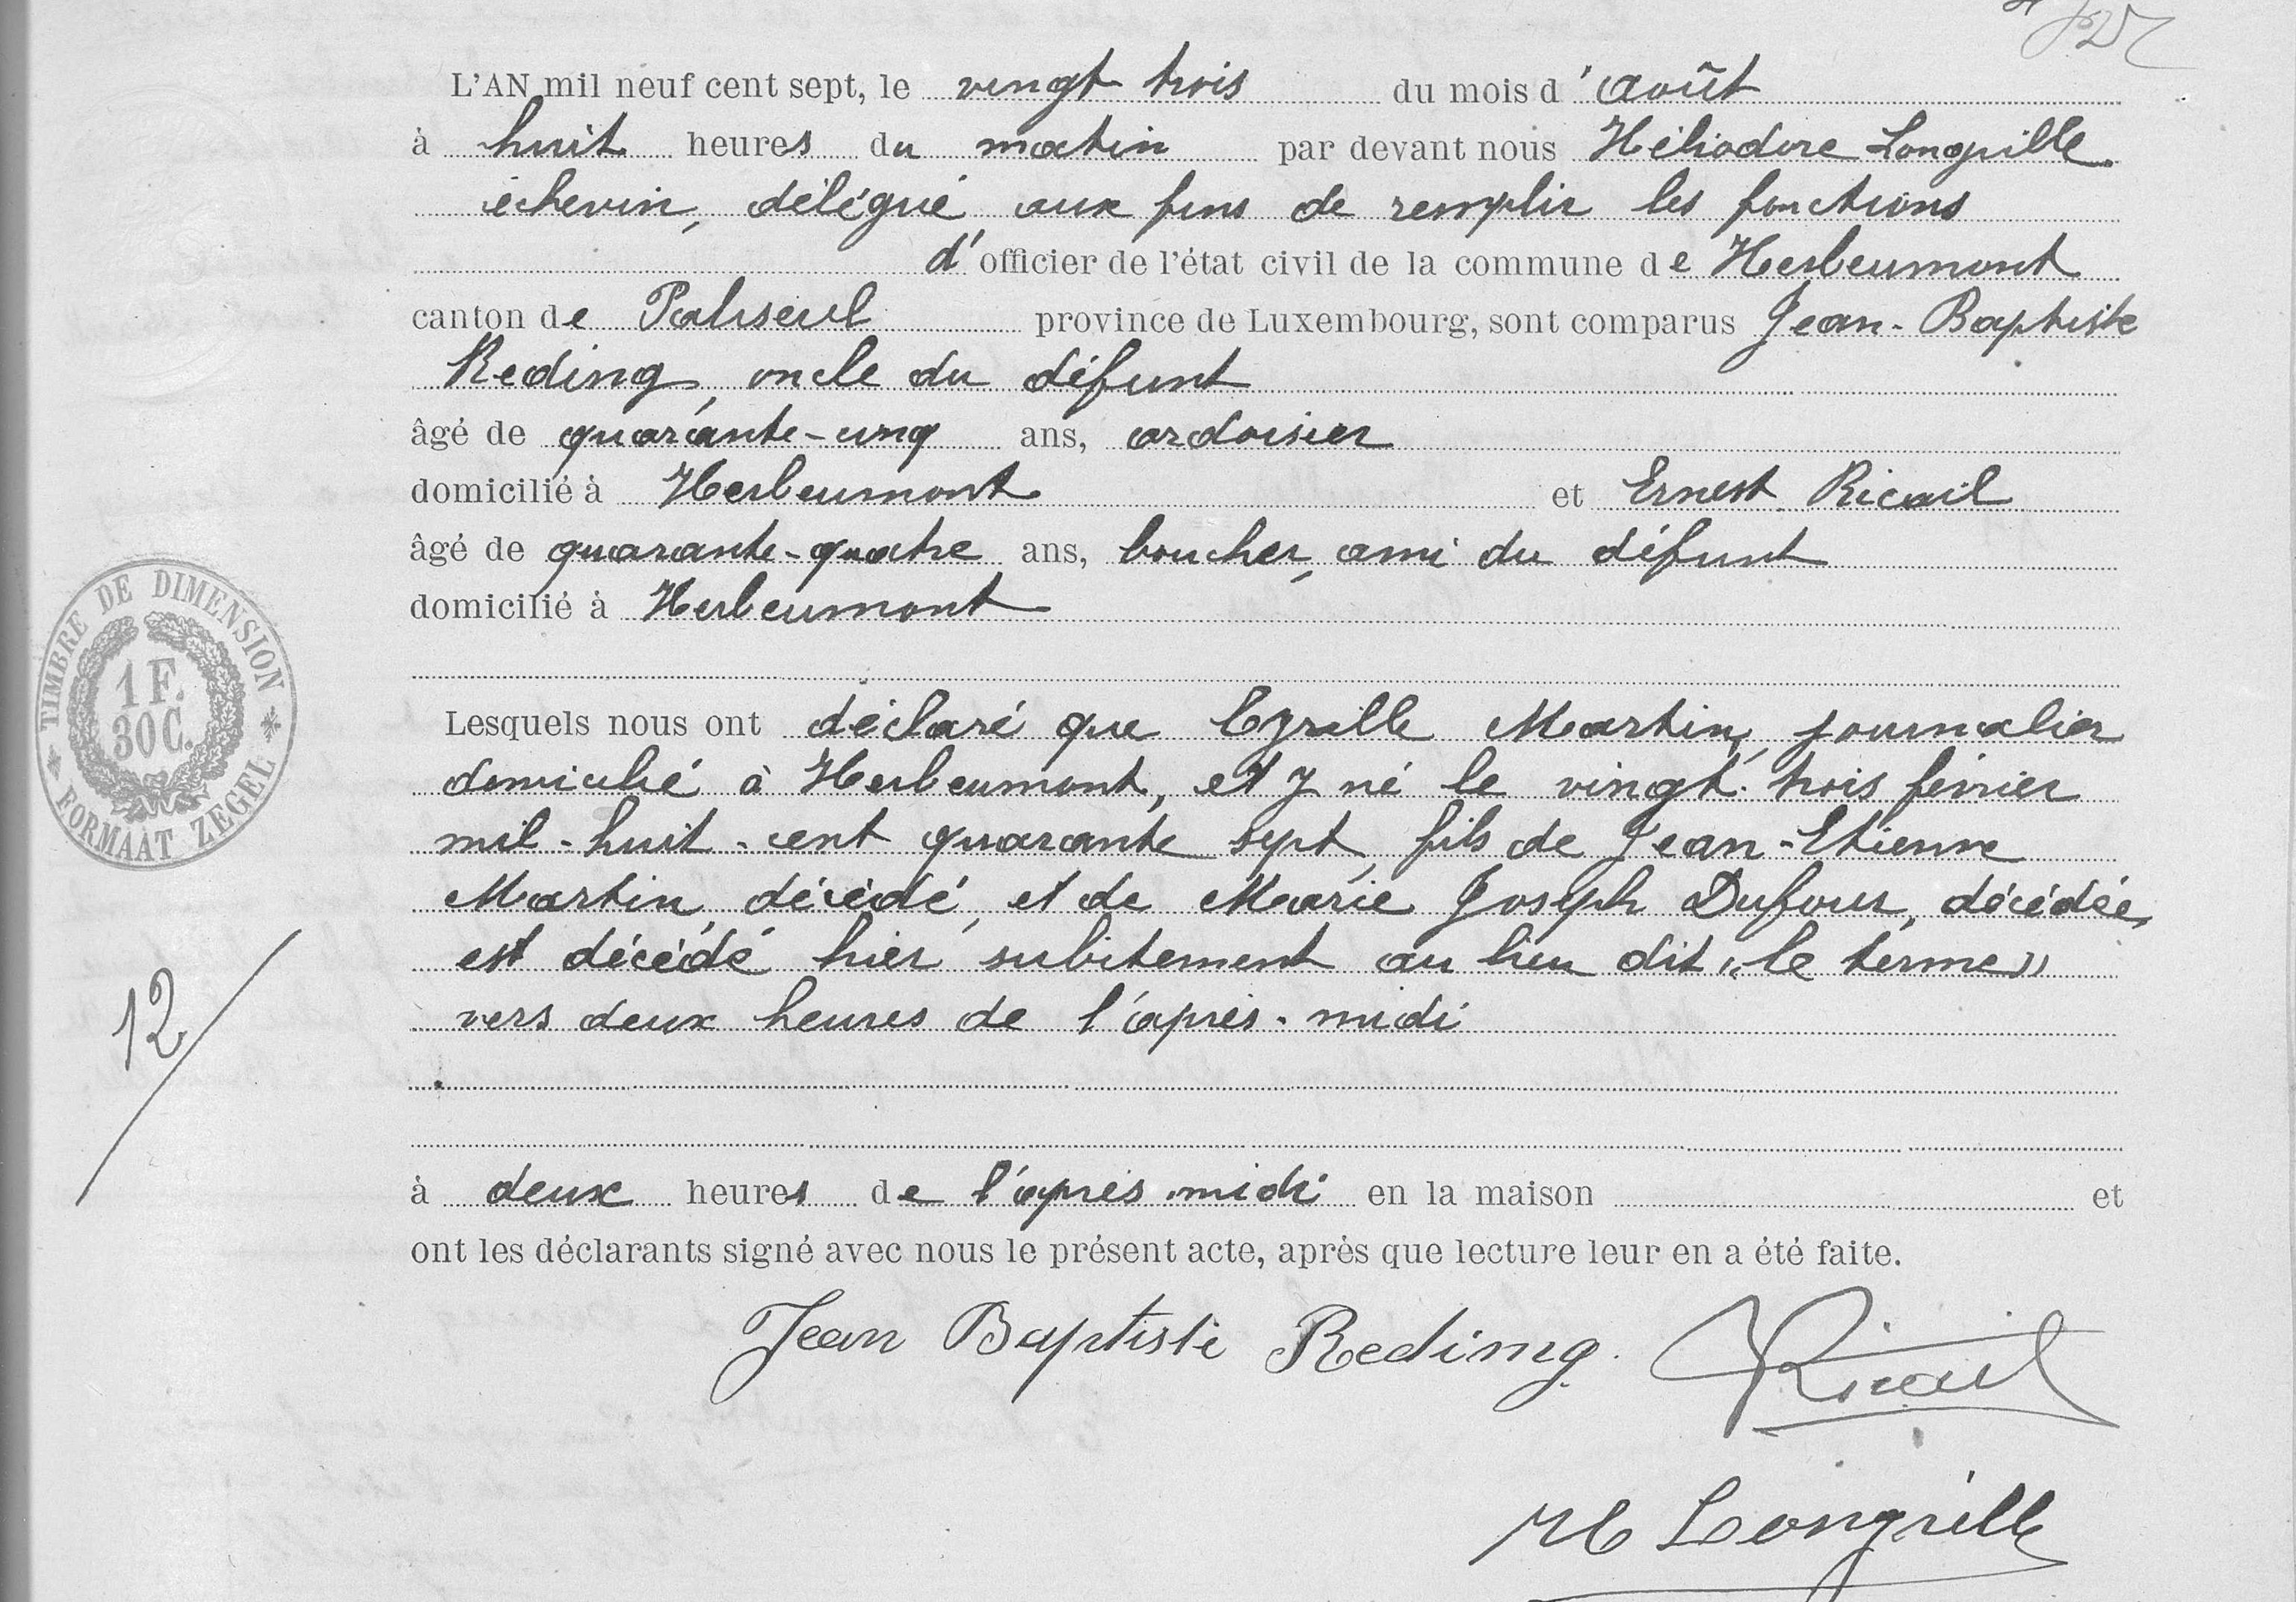 L'AN mil neuf cent sept, le vingt trois du mois d'août
à huit heures du matin par devant nous Héliodore Longville
échevin, délégué aux fins de remplir les fonctions
d'officier de l'état civil de la commune de Herbeumont
canton de Paliseul province de Luxembourg, sont comparus Jean-Baptiste
Reding, oncle du défunt
âgé de quarante-cinq ans, ardoisier
domicilié à Herbeumont et Ernest Ricail
âgé de quarante-quatre ans, boucher, ami du défunt
domicilié à Herbeumont
TIMBRE DE DIMENSION
1 F.
30 C.
FORMAAT ZEGEL
Lesquels nous ont déclaré que Cyrille Martin, journalier
domicilié à Herbeumont, et y né le vingt-trois février
mil-huit-cent quarante sept, fils de Jean-Etienne
Martin, décédé, et de Marie Joseph Dufour, décédée,
est décédé hier subitement au lieu dit "le terme"
vers deux heures de l'après-midi
12
à deux heures de l'après midi en la maison et
ont les déclarants signé avec nous le présent acte, après que lecture leur en a été faite.
Jean Baptiste Reding. Ricail
H Longville